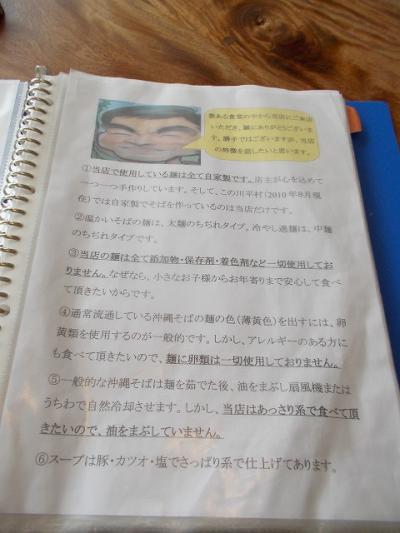 数ある食堂の中から当店にご来店
いただき、誠にありがとうございま
す。勝手ではございますが、当店
の特徴を話したいと思います。
①当店で使用している麺は全て自家製です。店主が心を込めて
一つ一つ手作りしています。そして、この川平村(2010年8月現
在)では自家製でそばを作っているのは当店だけです。
②温かいそばの麺は、太麺のちぢれタイプ。冷やし過麺は、中麺
のちぢれタイプです。
③当店の麺は全て添加物・保存料・着色剤など一切使用してお
りません。なぜなら、小さなお子様からお年寄りまで安心して食べ
て頂きたいからです。
④通常流通している沖縄そばの麺の色(薄黄色)を出すには、卵
黄類を使用するのが一般的です。しかし、アレルギーのある方に
も食べて頂きたいので、麺に卵類は一切使用しておりません。
⑤一般的な沖縄そばは麺を茹でた後、油をまぶし扇風機または
うちわで自然冷却させます。しかし、当店はあっさり系で食べて頂
きたいので、油をまぶしていません。
⑥スープは豚・カツオ・塩でさっぱり系で仕上げてあります。